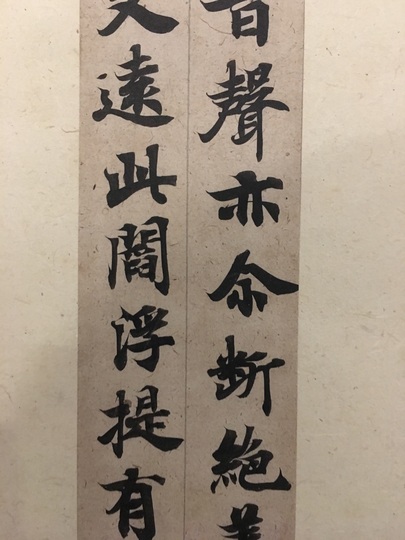 音聲亦尒斷絶
久遠此閻浮提有